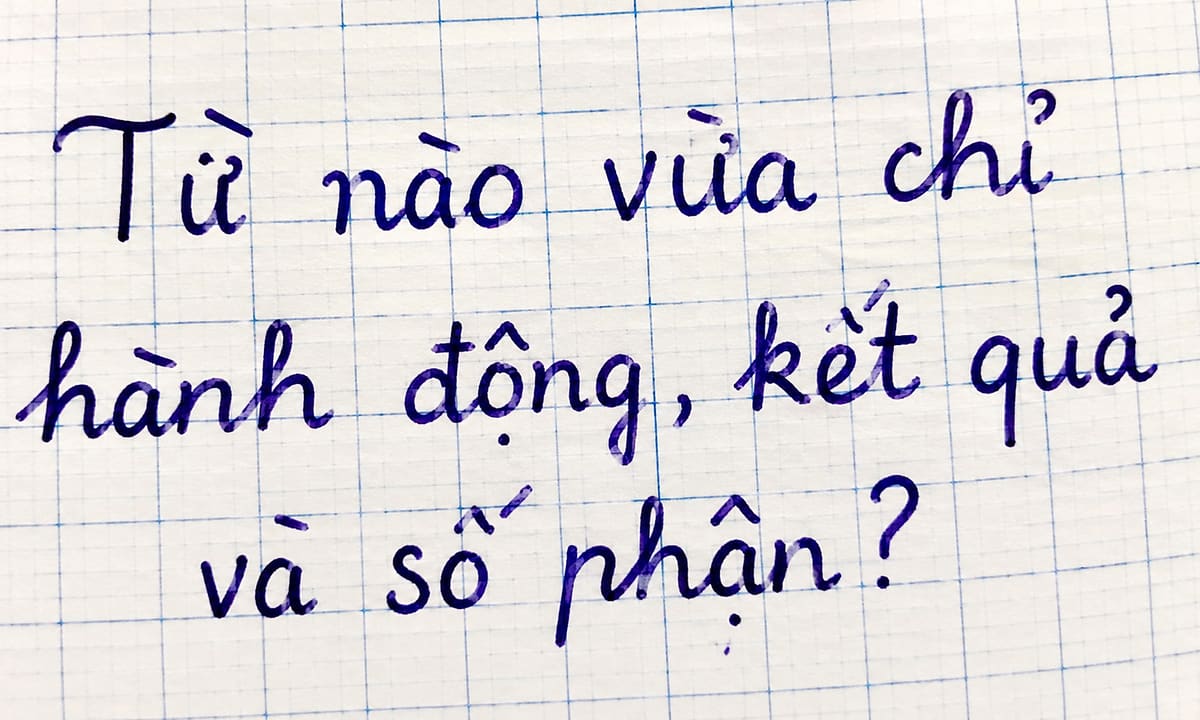 Từ nào vừa chỉ
hành động, kết quả
và số phận?